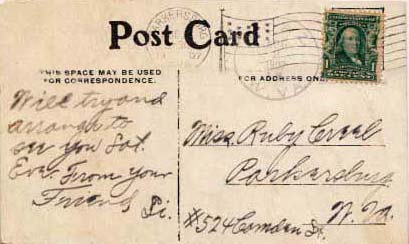 PARKERSBURG
Post Card
THIS SPACE MAY BE USED
FOR CORRESPONDENCE.
FOR ADDRESS ONLY
1
Will try and
arrange to
see you Sat.
Eve. From your
Friend Si.
Miss Ruby Creel
Parkersburg
W. Va.
#524 Camden St.